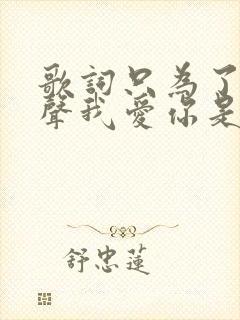 歌詞只為了
聲我愛你是
舒忠蓮